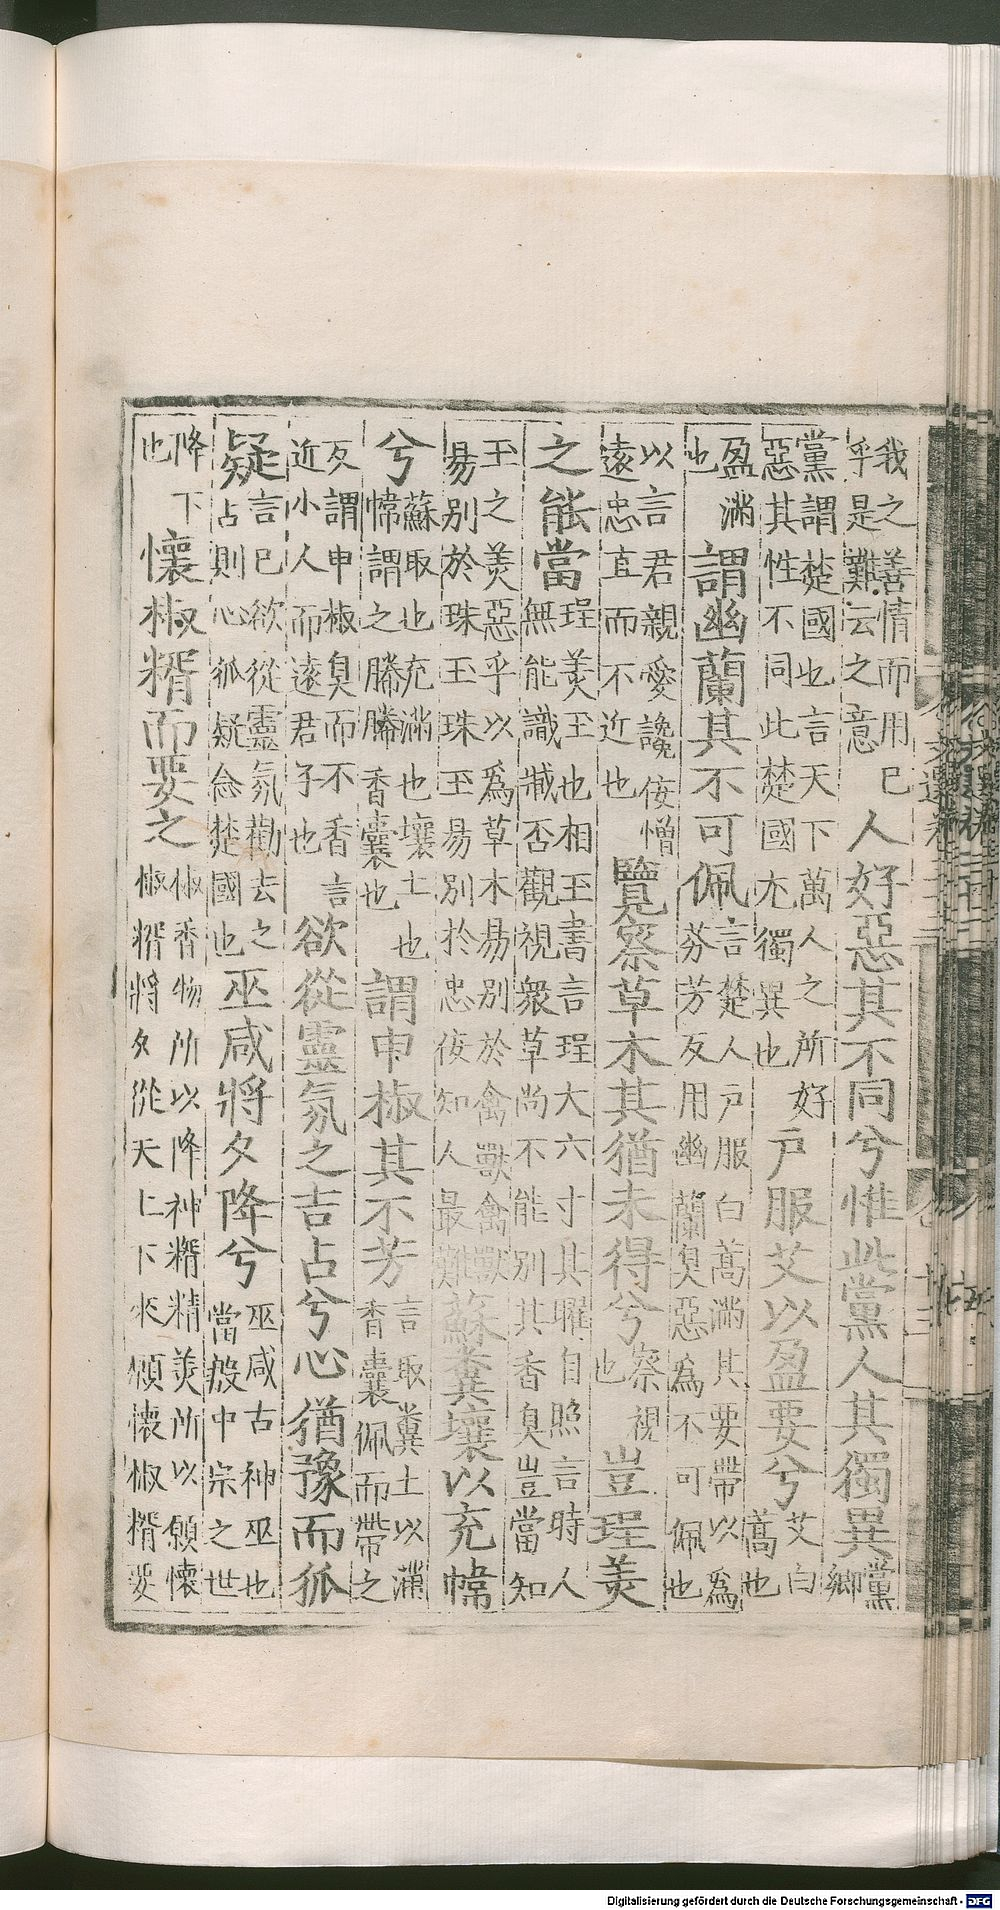 我之善情而用已乎是難云之意人好惡其不同兮惟此黨人其獨異黨鄉
黨謂楚國也言天下萬人之所好惡其性不同此楚國尤獨異也戶服艾以盈要兮艾白蒿也
盈滿也謂幽蘭其不可佩言楚人戶服白蒿滿其要帶以為芬芳反用幽蘭臭惡為不可佩也
以言君親愛讒佞憎遠忠直而不近也覽察草木其猶未得兮察視也豈珵美
之能當珵美玉也相玉書言珵大六寸其曜自照言時人無能識臧否觀視衆草尚不能別其香臭豈當知
玉之美惡乎以爲草木易別於禽獸禽獸易別於珠玉珠玉易別於忠佞知人最難蘇糞壤以充幃
兮蘇取也充滿也壤土也幃謂之幐幐香囊也謂申椒其不芳言取糞土以滿香囊佩而帶之
反謂申椒臭而不香言近小人而遠君子也欲從靈氛之吉占兮心猶豫而狐
疑言已欲從靈氛勸去之占則心狐疑念楚國也巫咸將夕降兮巫咸古神巫也當殷中宗之世
降下也懷椒糈而要之椒香物所以降神糈精美所以願懷椒糈將夕從天上下來願懷椒糈要
Digitalisierung gefördert durch die Deutsche Forschungsgemeinschaft - DFG